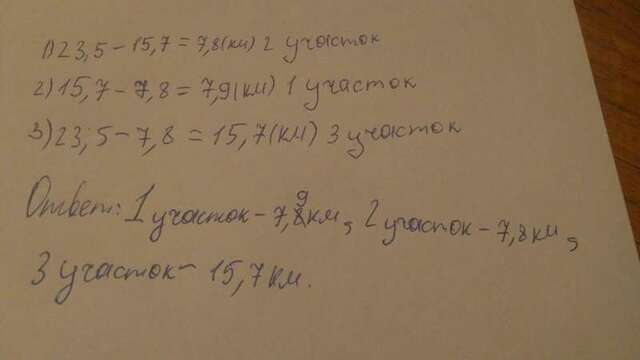 1) 23,5 - 15,7 = 7,8 (км) 2 участок
2) 15,7 - 7,8 = 7,9 (км) 1 участок
3) 23,5 - 7,8 = 15,7 (км) 3 участок
Ответ: 1 участок - 7,9 км, 2 участок - 7,8 км,
3 участок - 15,7 км.